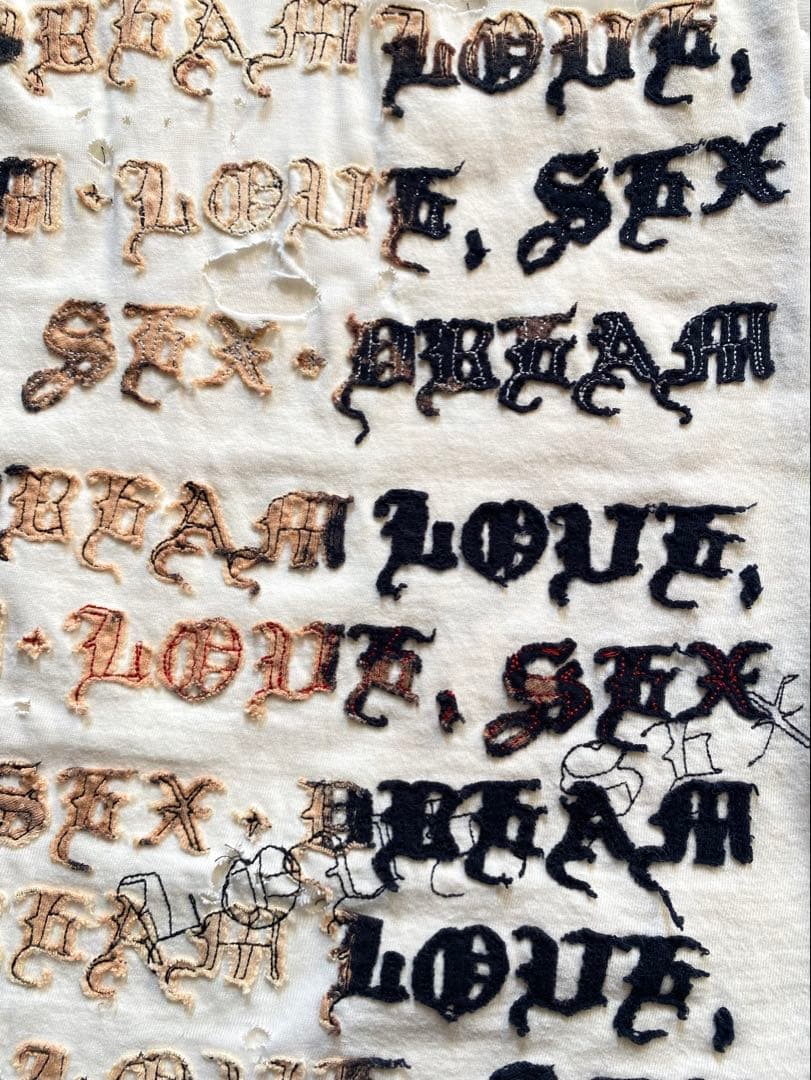 DREAM LOVE,
M · LOVE, SEX
SEX · DREAM
DREAM LOVE,
· LOVE, SEX
SEX
SEX · DREAM
LOVE
EAM LOVE,